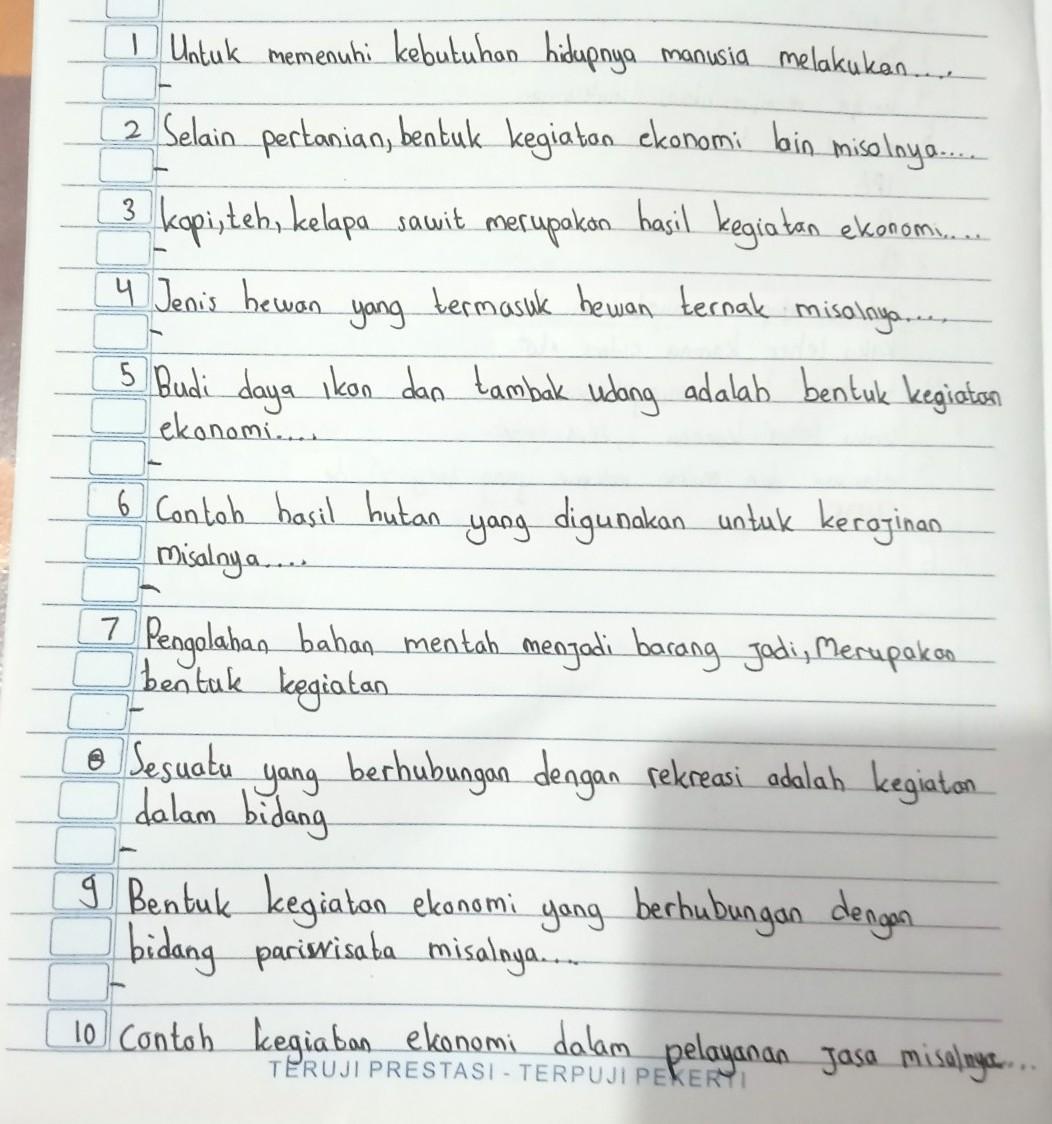 1 Untuk memenuhi kebutuhan hidupnya manusia melakukan....
-
2 Selain pertanian, bentuk kegiatan ekonomi lain misalnya....
-
3 kopi, teh, kelapa sawit merupakan hasil kegiatan ekonomi....
-
4 Jenis hewan yang termasuk hewan ternak misalnya....
-
5 Budi daya ikan dan tambak udang adalah bentuk kegiatan
ekonomi....
-
6 Contoh hasil hutan yang digunakan untuk kerajinan
misalnya....
-
7 Pengolahan bahan mentah menjadi barang jadi, Merupakan
bentuk kegiatan
-
8 Sesuatu yang berhubungan dengan rekreasi adalah kegiatan
dalam bidang
-
9 Bentuk kegiatan ekonomi yang berhubungan dengan
bidang pariwisata misalnya....
-
10 Contoh kegiatan ekonomi dalam pelayanan jasa misalnya...
TERUJI PRESTASI - TERPUJI PEKERTI